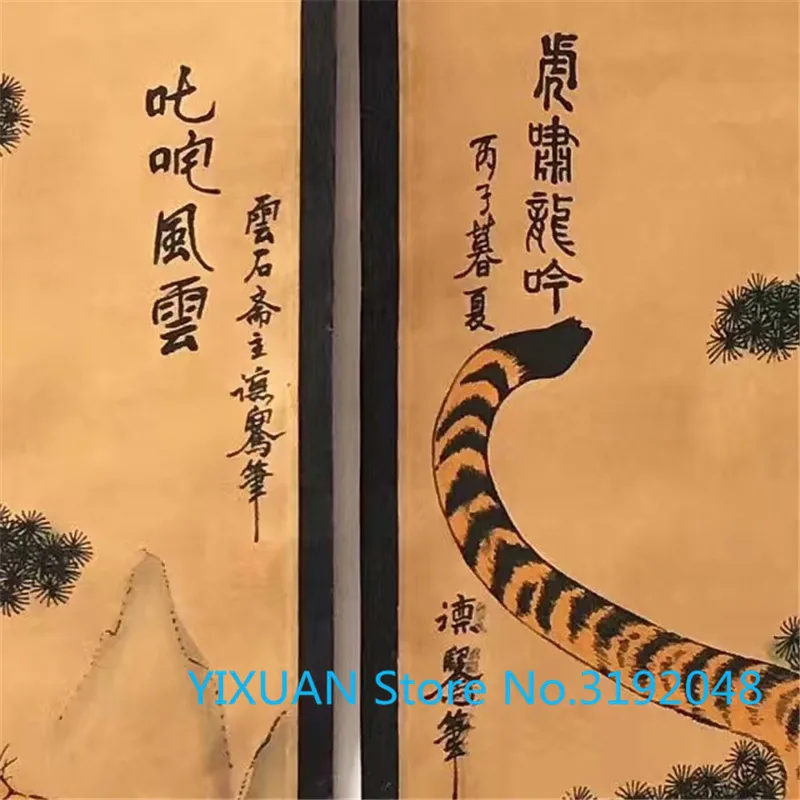 叱咤風雲
雲石斋主譓寫筆
虎嘯龍吟
丙子暮夏
YIXUAN Store No.3192048